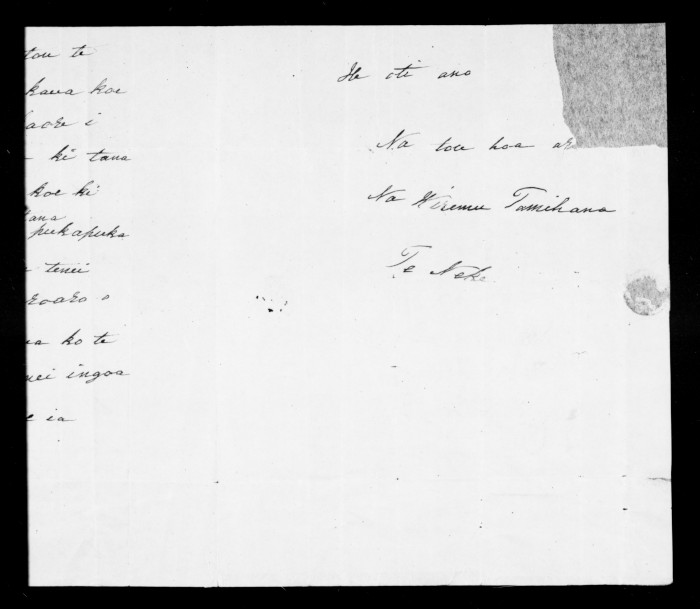 tou te
kawa koe
kaore i
ki tana
koe ki
tana
pukapuka
tenei
aroaro o
ko te
nei ingoa
ia
He oti ano
Na tou hoa
Na Wiremu Tamihana
Te Neke